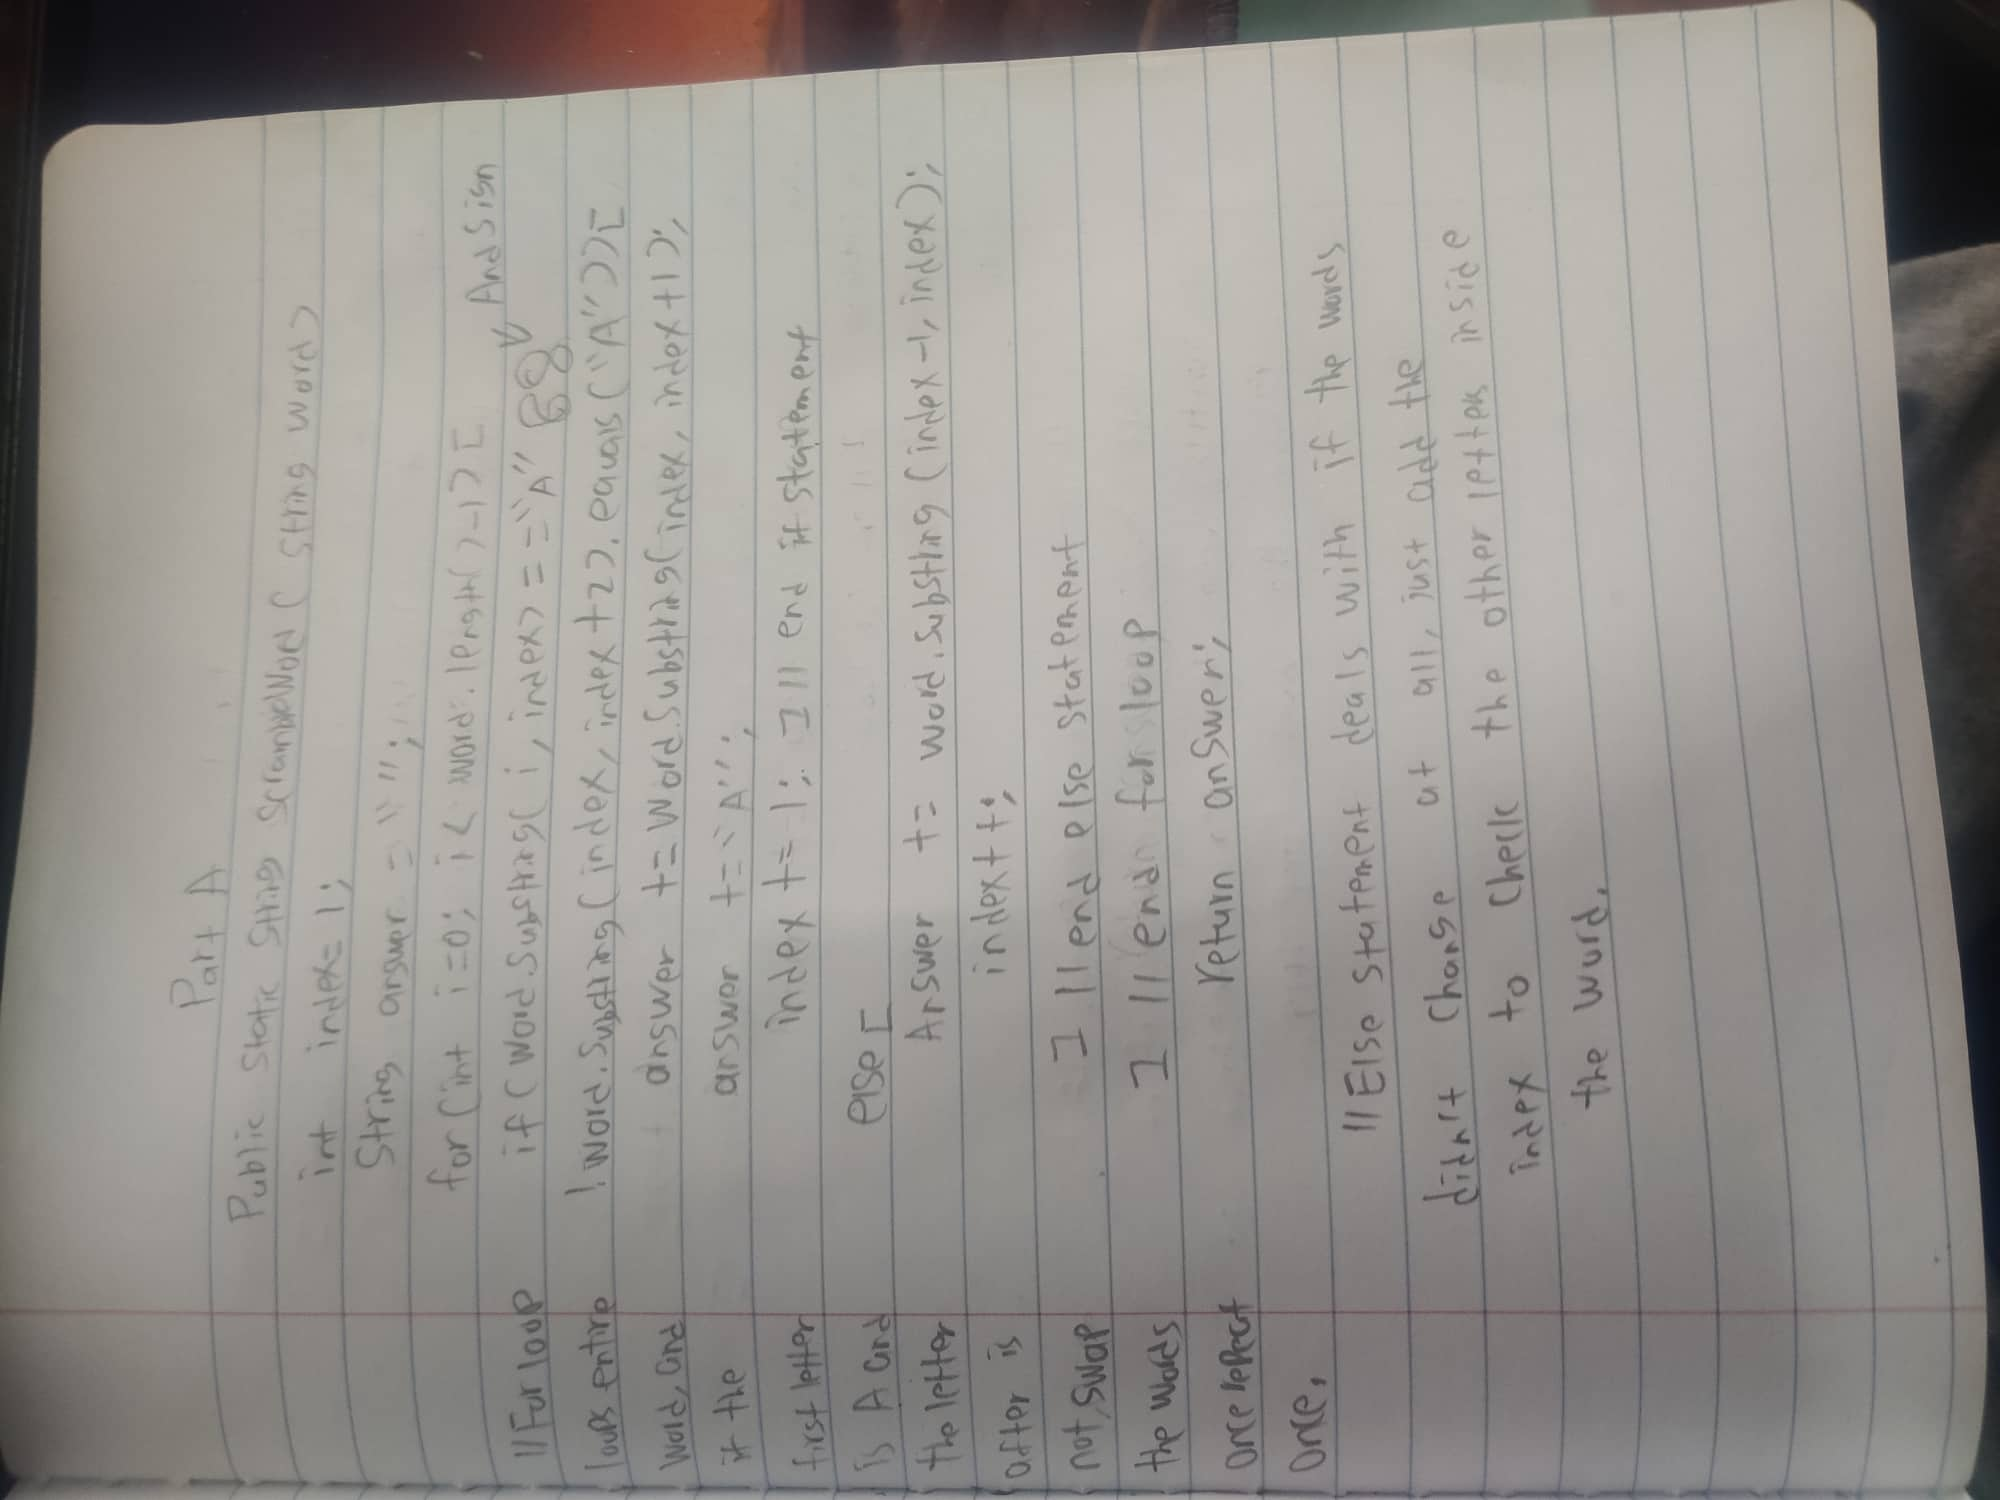 Part A
Public static String scrambleWord ( String word)
int index= 1;
String answer = " ";
for (int i=0; i < word.length( )-1) [
And sign
if (word.substring( i, index) = = "A" &&
!.word.substring(index, index +2). equals ("A"))[
answer += word.substring(index, index +1);
answer +="A";
index += 1; ] // end if statement
else [
Answer += word.substring (index-1, index);
index++;
] // end else statement
] // end for loop
return answer;
// For loop
loops entire
word, and
if the
first letter
is A and
the letter
after is
not, swap
the words
once repeat
once.
// Else statement deals with if the words
didn't change at all, just add the
index to check the other letters inside
the word.